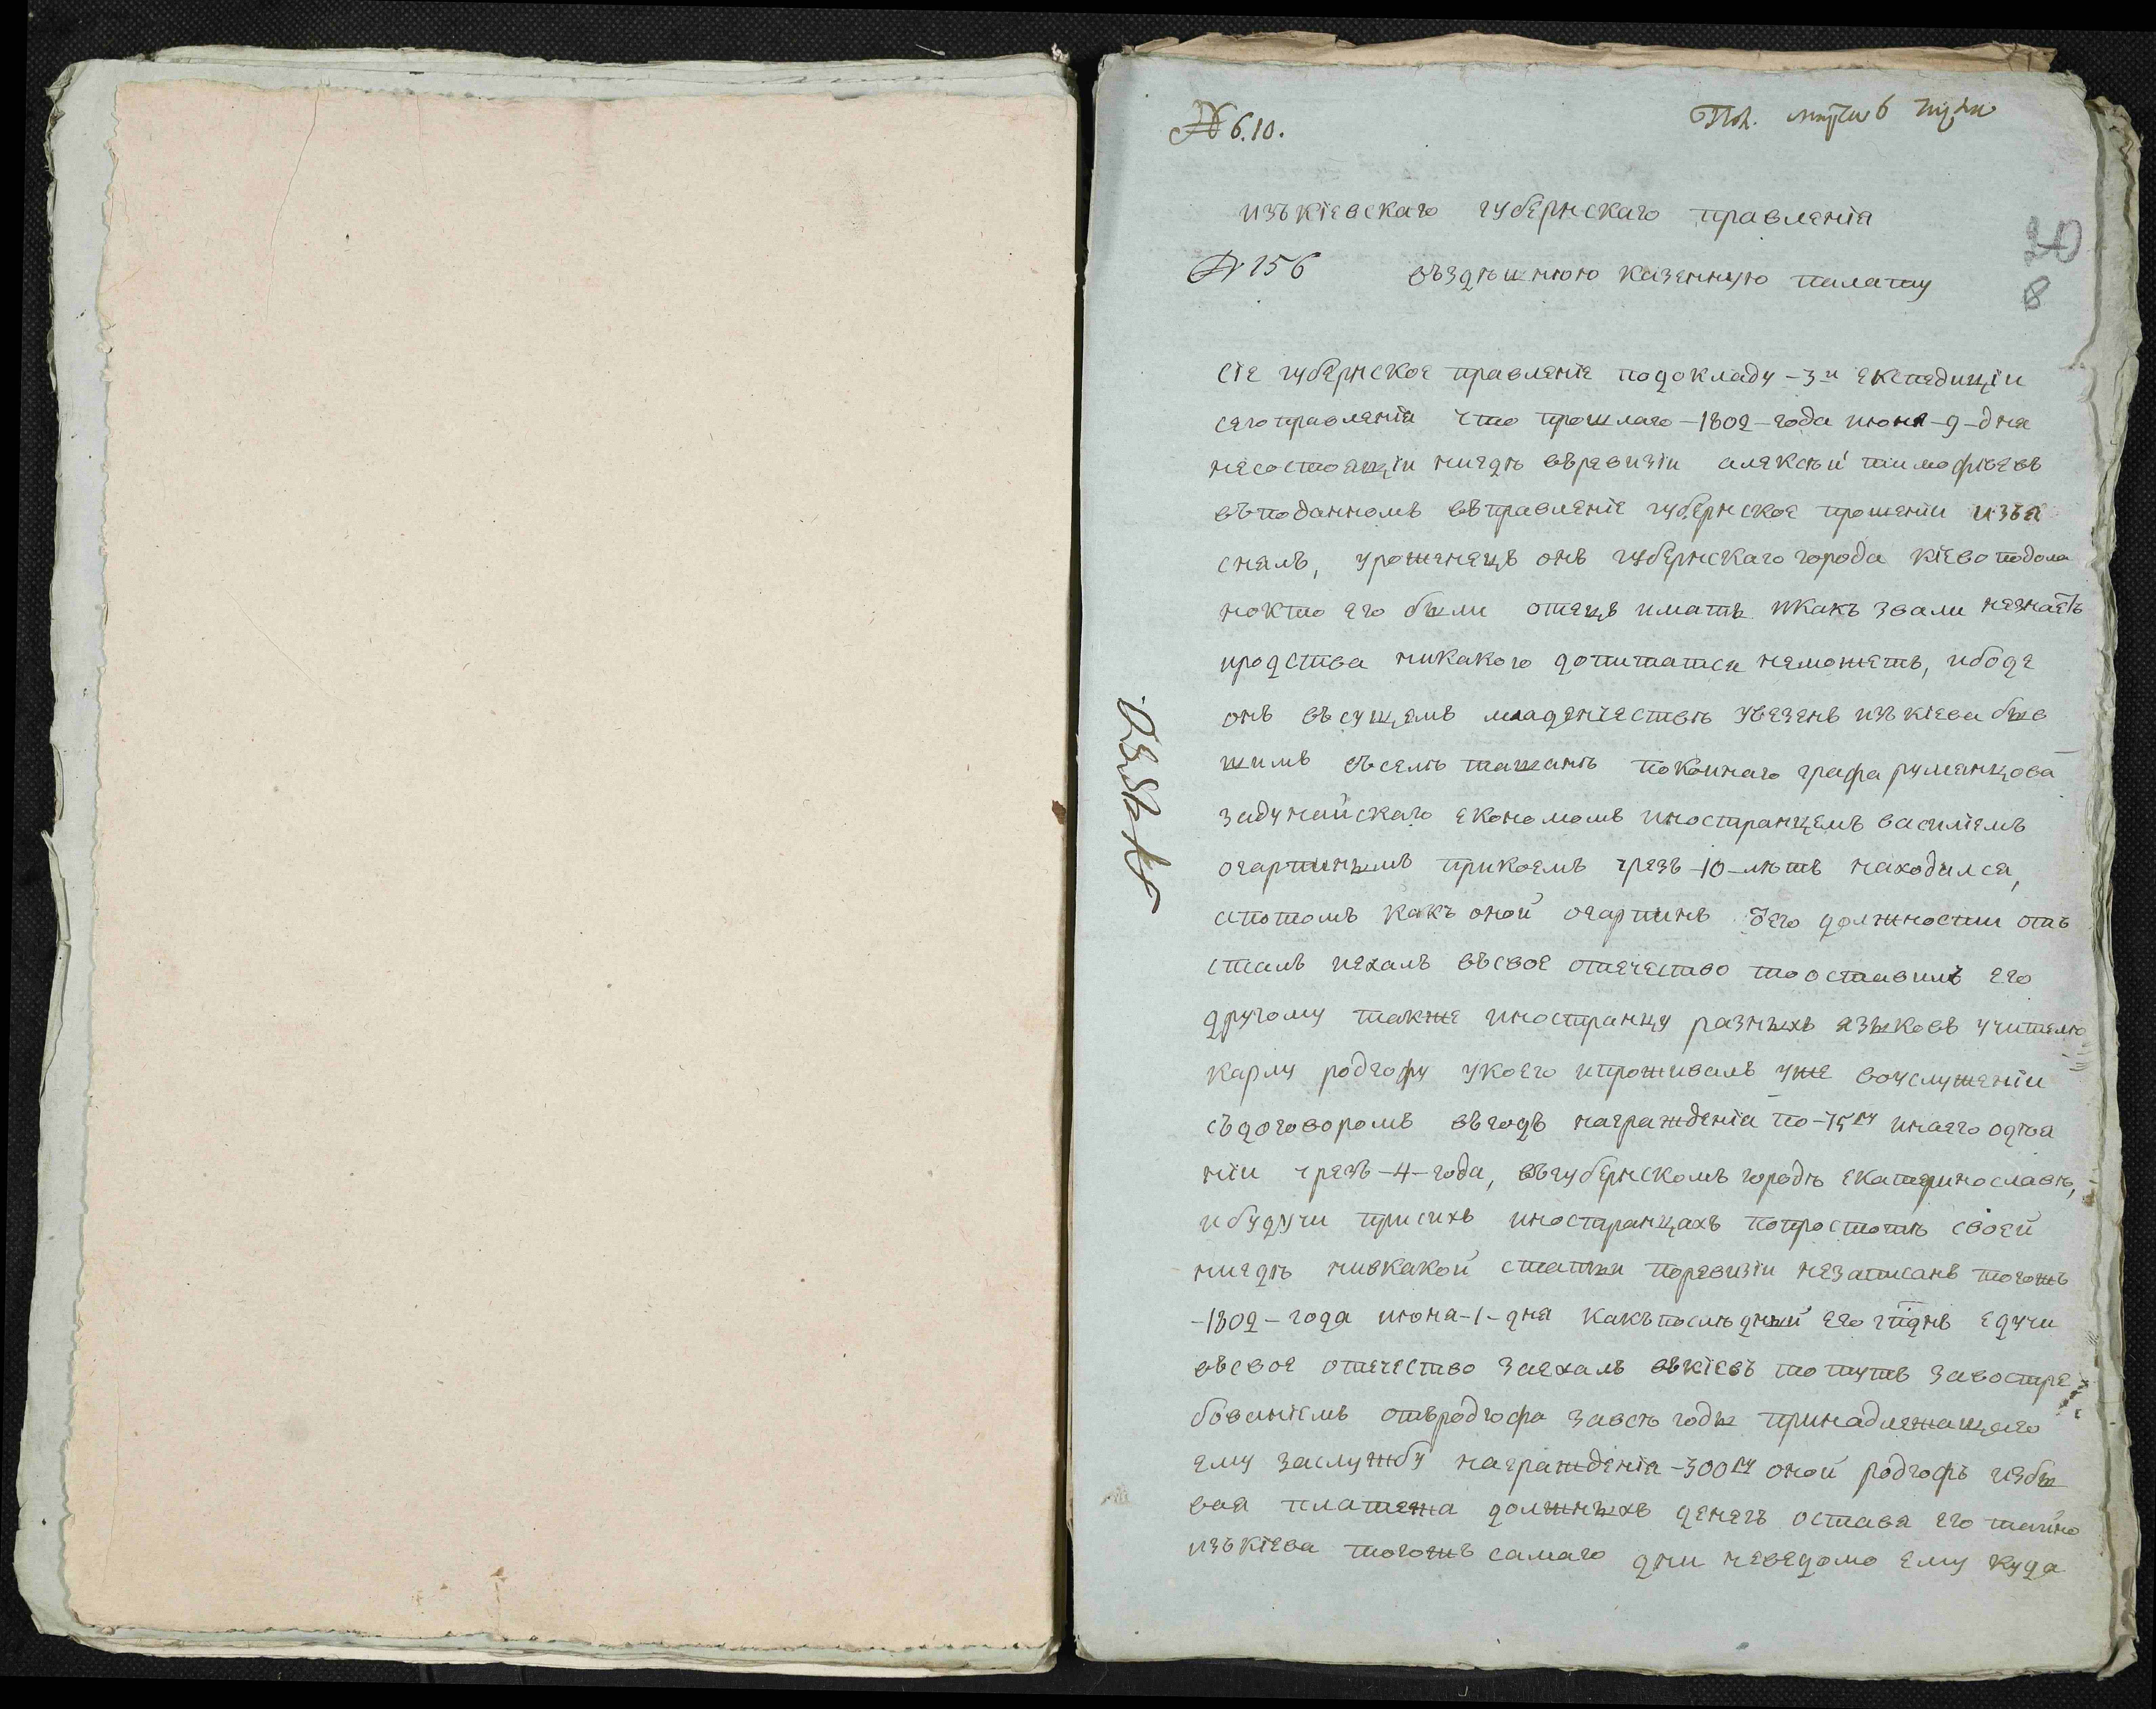 № 610.
изъ кіевскаго губернскаго правленія
20
№ 156 въздѣшнюю казенную палату
8
сіе губернское правленіе подокладу -3и експедиціи
сегоправленія что прошлаго -1802- года июня -9- дня
несостоящіи нигдѣ въревизіи алексѣй тимофѣевъ
въподанномъ въправленіе губернское прошеніи изъя
снялъ, уроженецъ онъ губернскаго города кіевоподола
нокто его были отецъ иматъ икакъ звали незнаетъ
иродства никакого допитатся неможетъ, ибоде
онъ въсущемъ младенчествѣ увезенъ изъ кіева быв
шимъ въселѣ ташанѣ покоинаго графа румянцова
задунайскаго економомъ иностранцемъ василіемъ
огартинымъ прикоемъ чрезъ -10- лѣтъ находился,
апотомъ какъ оной огартинъ его должности отъ
сталъ иехалъ въсвое отечество тооставилъ его
другому также иностранцу разныхъ языковъ учителю
карлу родгофу укоего ипроживалъ уже воуслуженіи
съдоговоромъ вгодъ награжденія по -75ру инаего одѣя
ніи чрезъ -4- года, въгубернскомъ городѣ екатеринославѣ,
ибудучи присихъ иностранцахъ попростотѣ своей
нигдѣ нивкакой статьи поревизіи незаписанъ тогожъ
-1802- года июня -1- дня какъпослѣдный его гпднъ едучи
въсвое отечество заехалъ въкіевъ то тутъ завостре
бованіемъ отъродгофа завсѣ годы принадлежащаго
ему заслужбу награжденія -300ру оной родгофъ избы
вая платежа должныхъ денегъ оставя его тайно
изъкіева тогожъ самаго дни неведомо ему куда